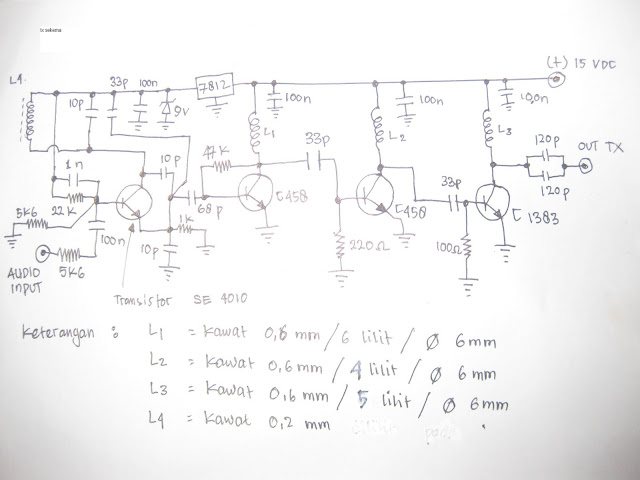 tx sekema
(+) 15 VDC
L4
10p
33p
100n
9V
7812
100n
L1
100n
L2
100n
L3
120p
OUT TX
120p
10p
47K
33p
1n
22K
5K6
68p
C458
C458
33p
C 1383
1K
100n
10p
220Ω
100Ω
AUDIO INPUT
5K6
Transistor SE 4010
Keterangan : L1 = Kawat 0,6 mm / 6 lilit / Ø 6mm
L2 = Kawat 0,6 mm / 4 lilit / Ø 6 mm
L3 = Kawat 0,6 mm / 5 lilit / Ø 6mm
L4 = Kawat 0,2 mm